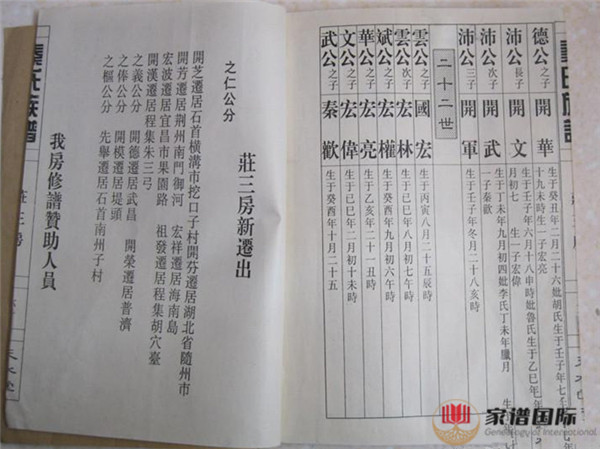 德公之子 開華 生于癸丑年二月二十六妣胡氏生于壬子年七
十九未時生一子宏亮
沛公長子 開文 生于壬子年六月十八申時妣魯氏生于乙巳年
月初七 生一子宏偉
沛公次子 開武 生于丁未年九月初四妣李氏丁未年臘月
一子秦歡
沛公三子 開軍 生于壬子年冬月二十八亥時
二十二世
雲公之子 國宏 生于丙寅八月二十五辰時
雲公次子 宏林 生于己巳年八月初七午時
斌公之子 宏權 生于癸酉年九月初六午時
華公之子 宏亮 生于乙亥年二十一丑時
文公之子 宏偉 生于己巳年二月初十未時
武公之子 秦歡 生于癸酉年十月二十五
莊三房新遷出
之仁公分
開芝遷居石首橫溝市挖口子村開芬遷居湖北省隨州市
開芳遷居荆州南門御河 宏祥遷居海南島
宏波遷居宜昌市果園路 祖發遷居程集胡穴臺
開漢遷居程集朱三弓
之義公分 開德遷居武昌 開榮遷居普濟
之俸公分 開模遷居堤頭
之樞公分 先舉遷居石首南州子村
我房修譜贊助人員
氏族譜
莊三房
家谱国际
Genealogy of International